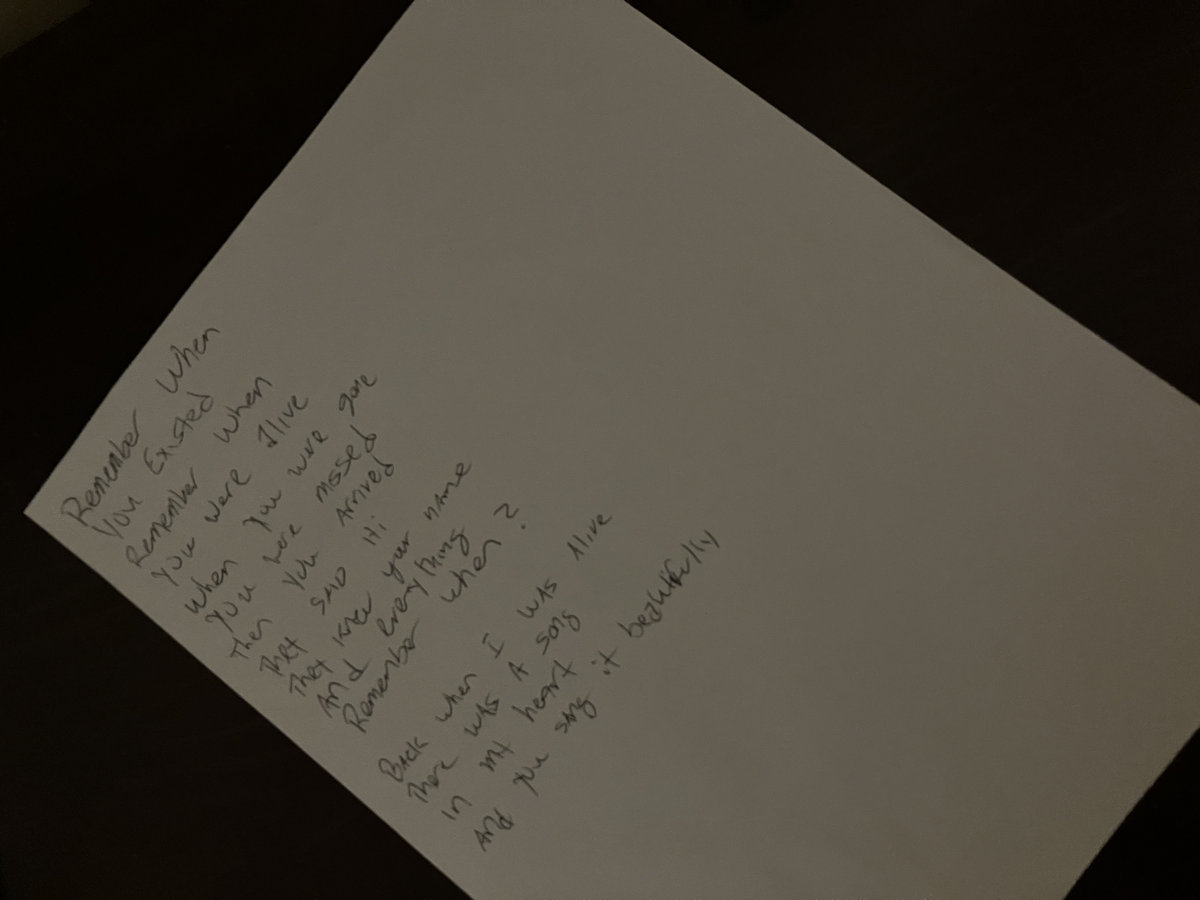 Remember When
You Existed
Remember When
You were Alive
When you were gone
You were missed
Then you Arrived
They said Hi
They knew your name
And everything
Remember when?
Back when I was Alive
There was A song
In my heart
And you sang it beautifully